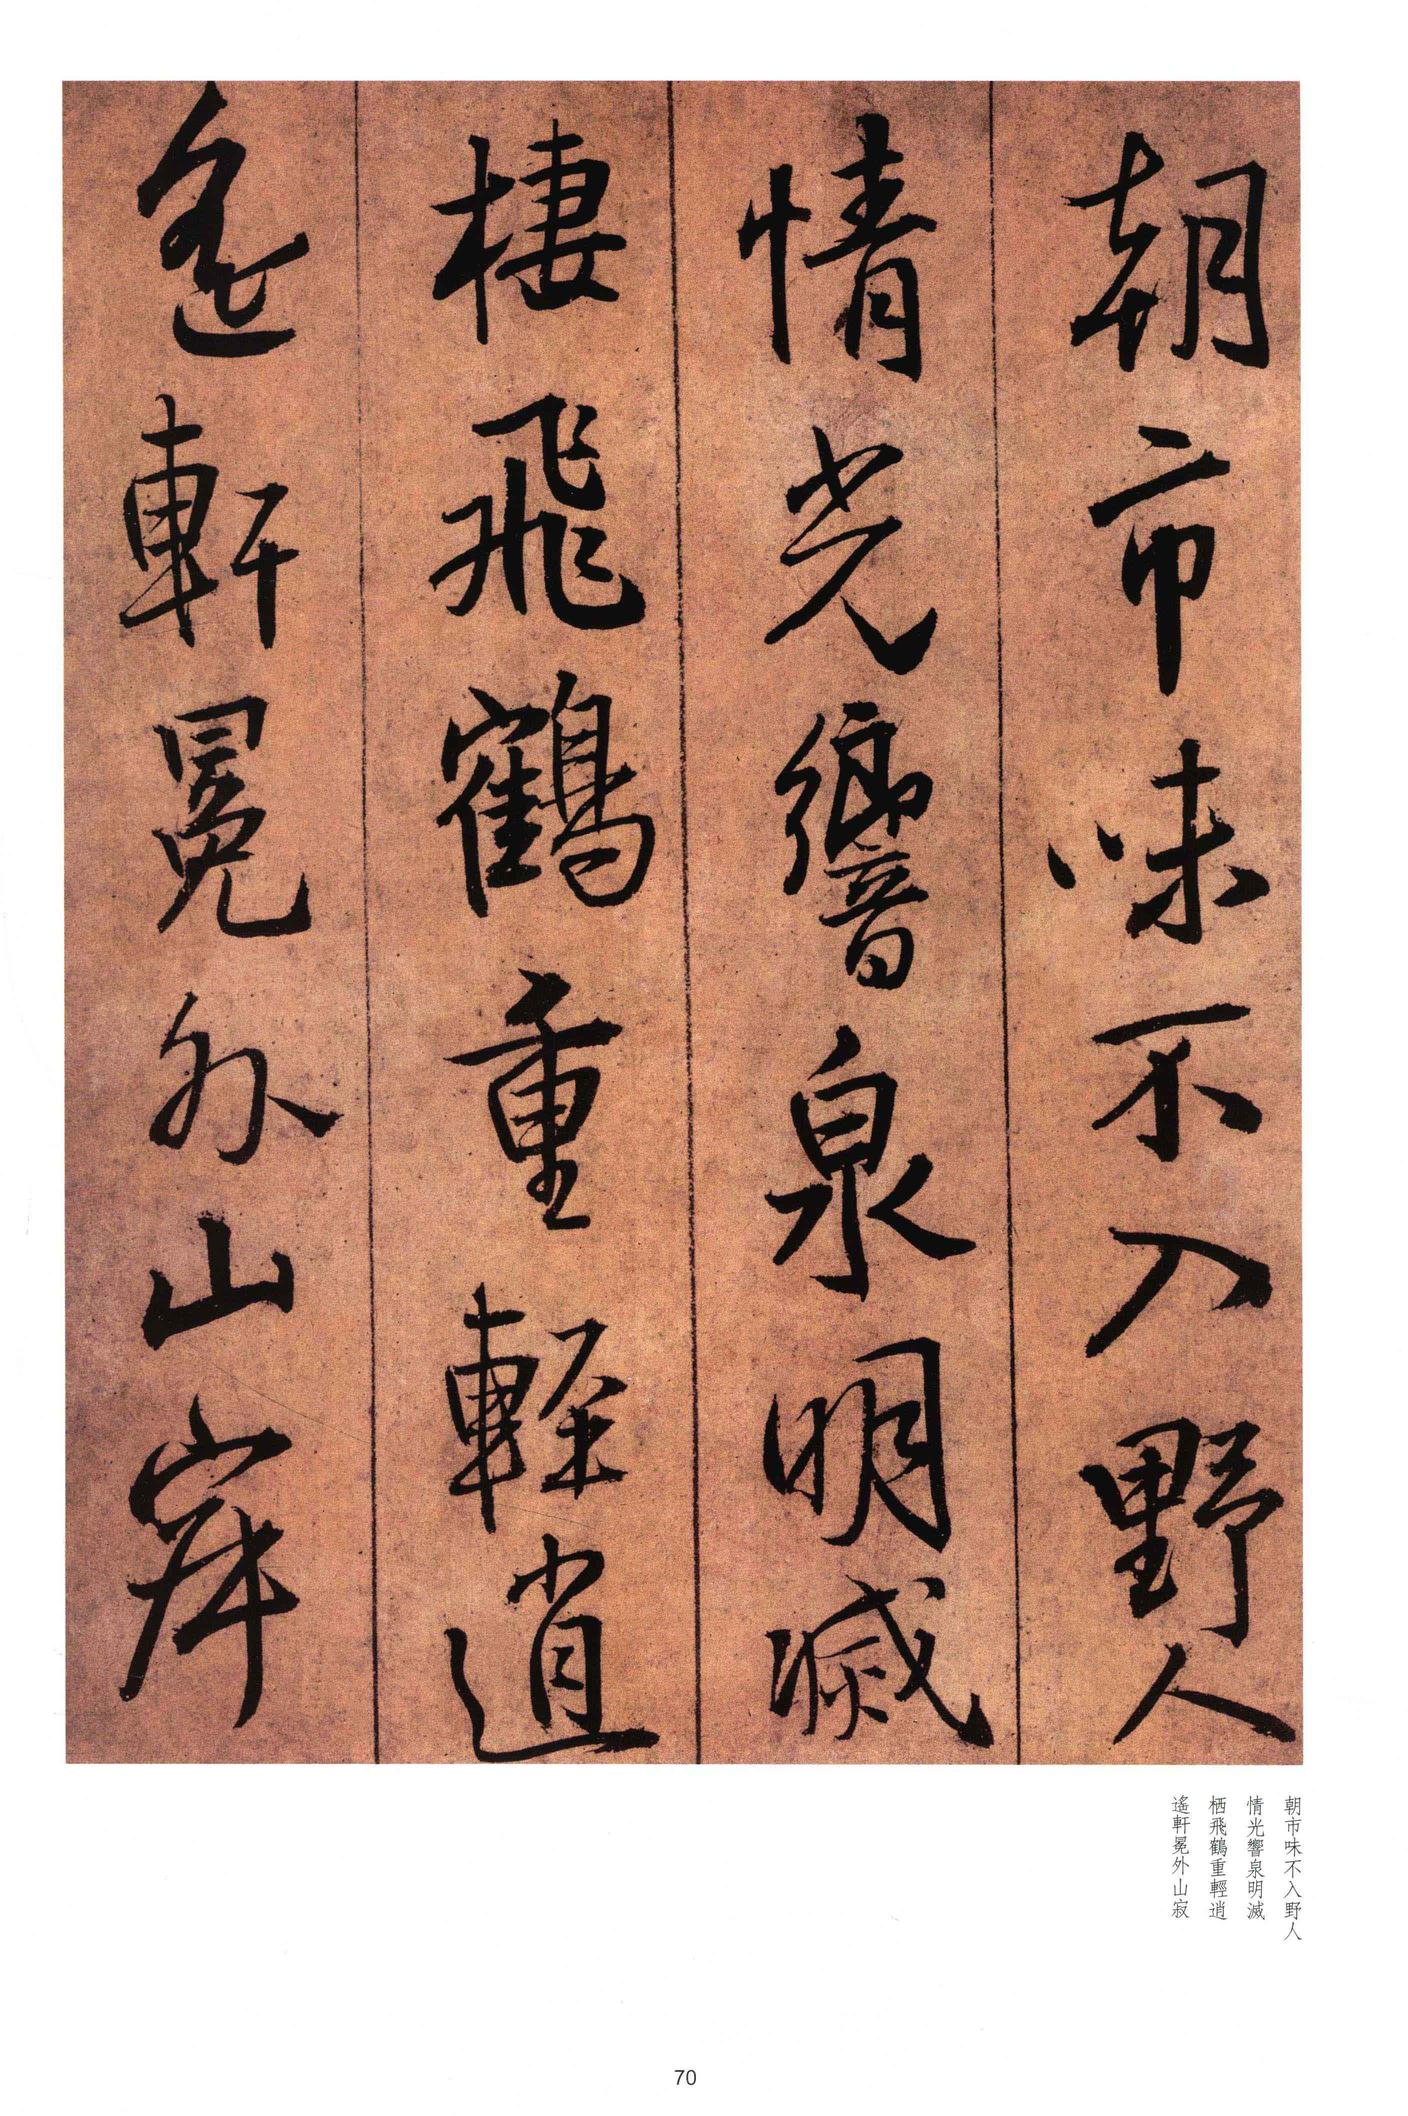 朝市味不入野人
情光響泉明滅
棲飛鶴重輕逍
遙軒冕外山寂
朝市味不入野人
情光響泉明滅
栖飛鶴重輕逍
遙軒冕外山寂
70